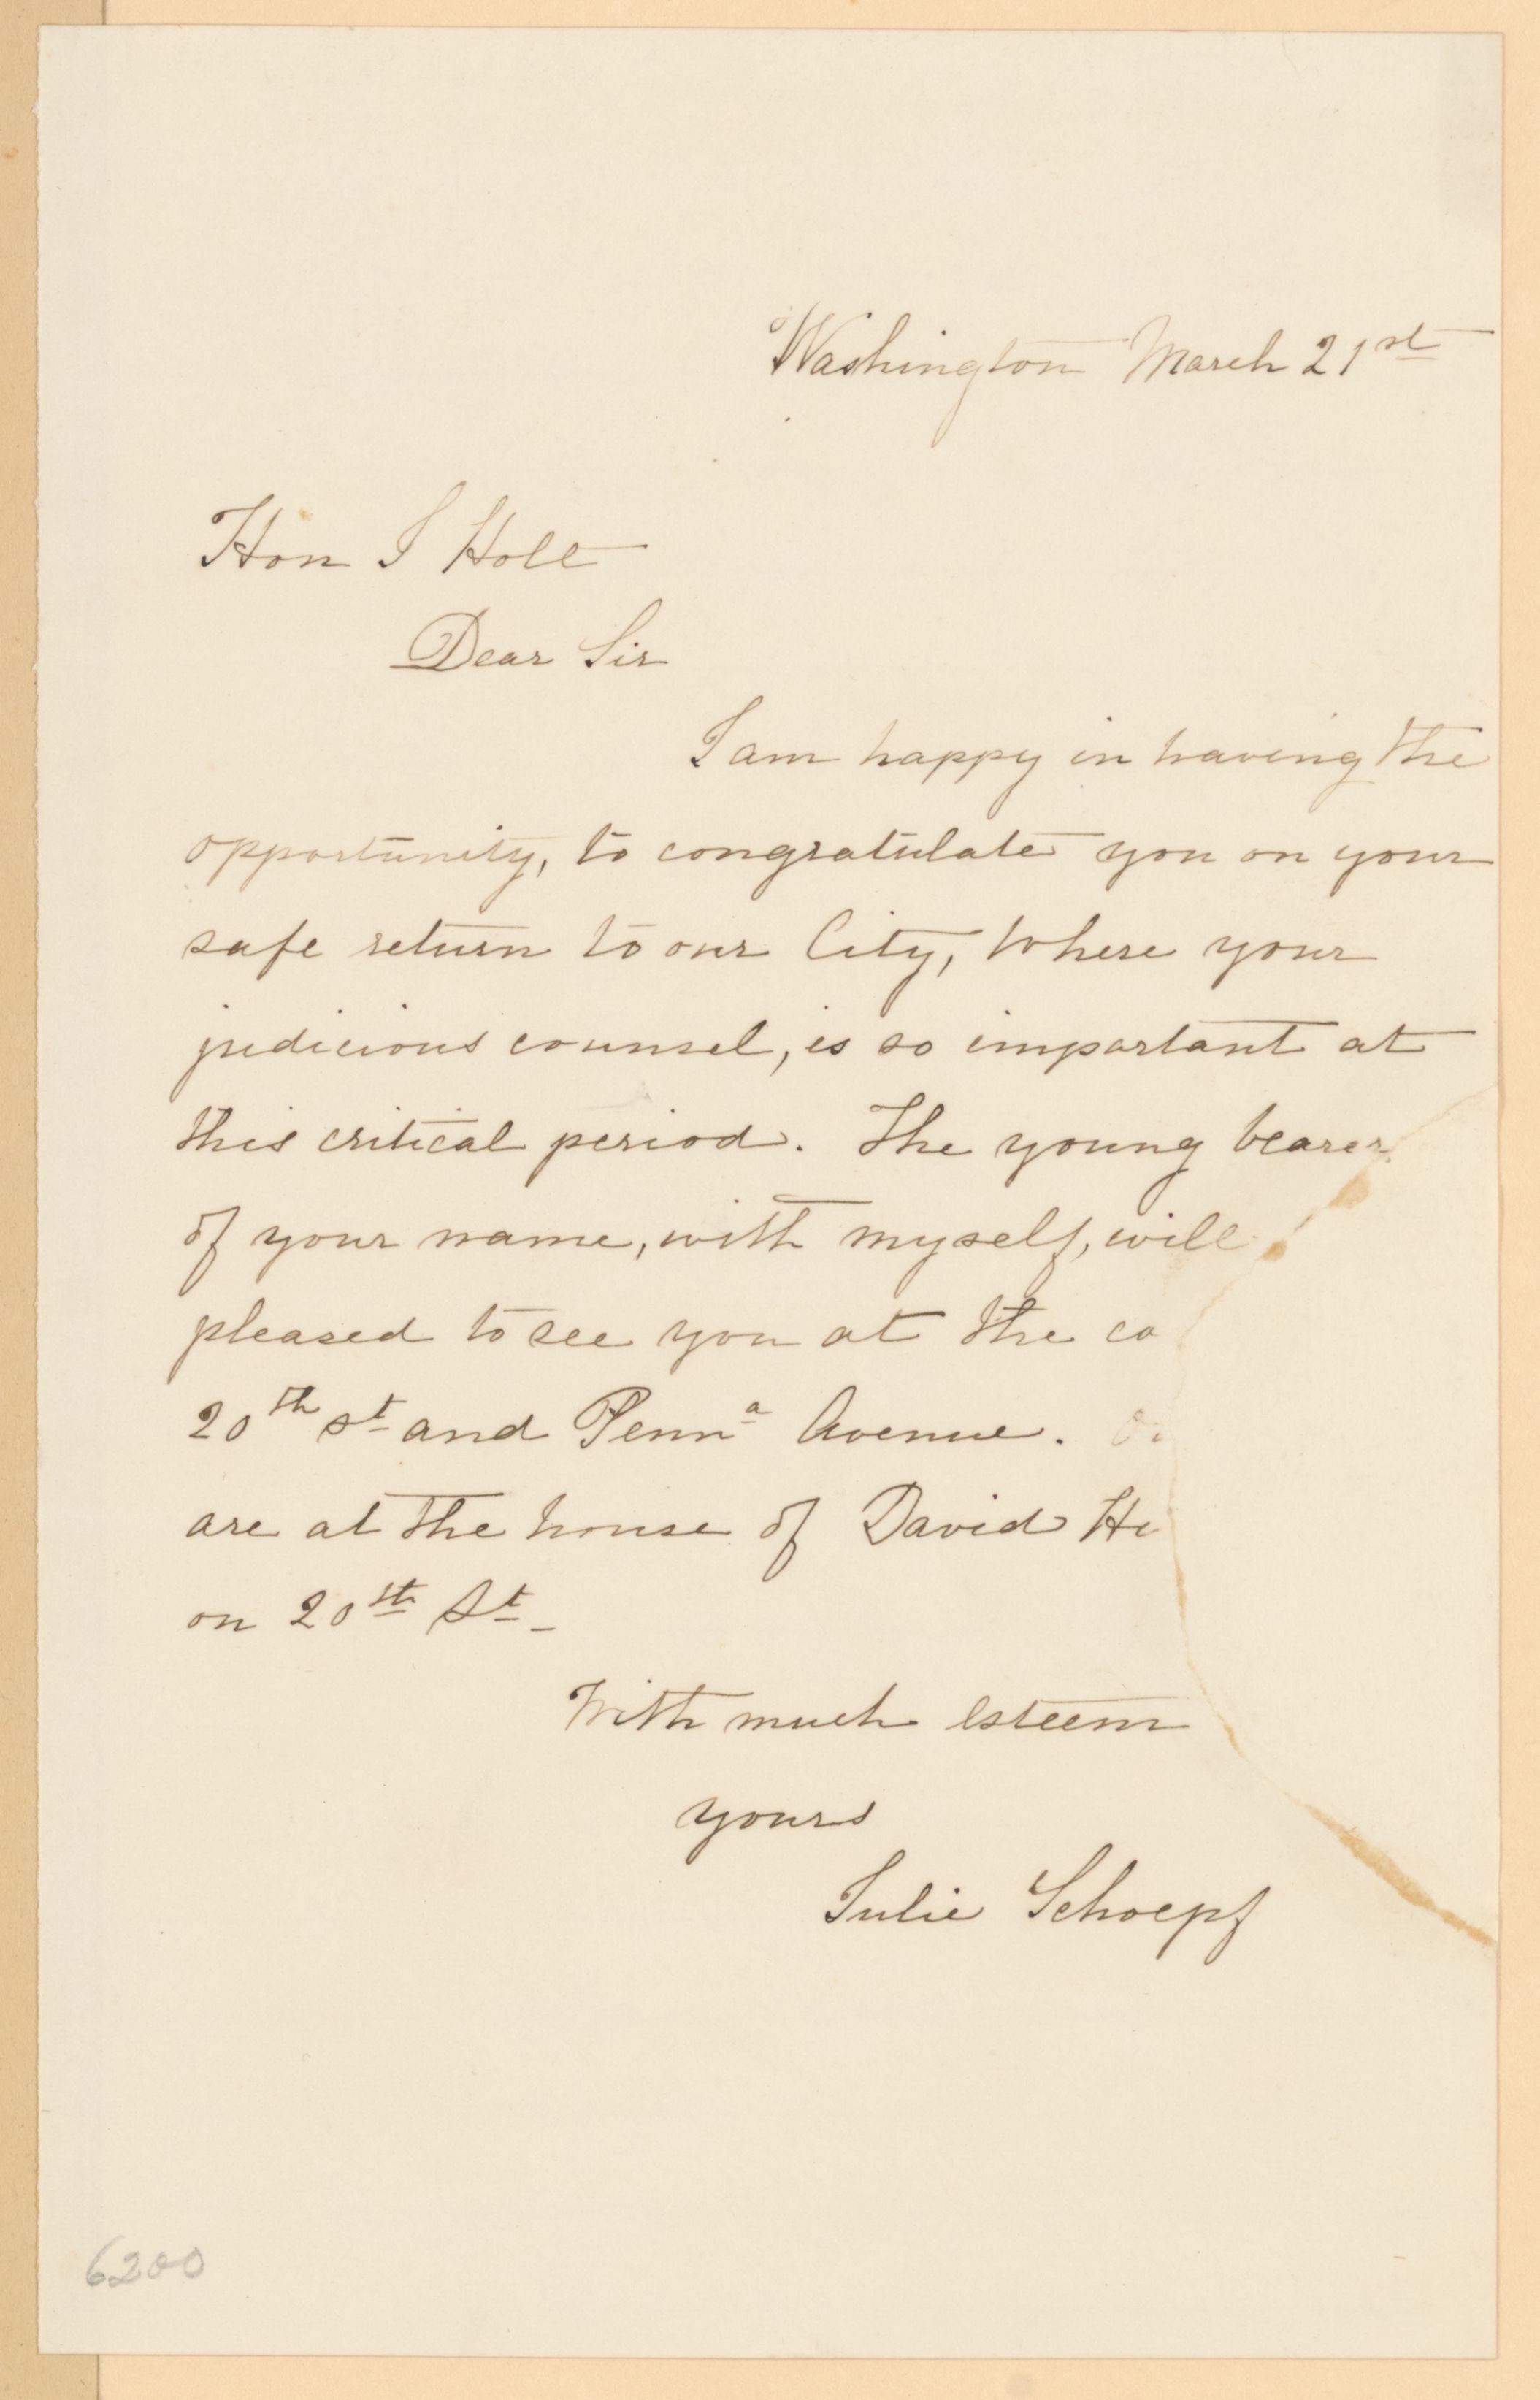 Washington March 21st
Hon J Holt
Dear Sir
I am happy in having the
opportunity, to congratulate you on your
safe return to our City, where your
judicious counsel, is so important at
this critical period. The young bearer
of your name, with myself, will
pleased to see you at the co
20th st and Penna Avenue.
are at the house of David He
on 20th St_
With much esteem
yours
Julie Schoepf
6200